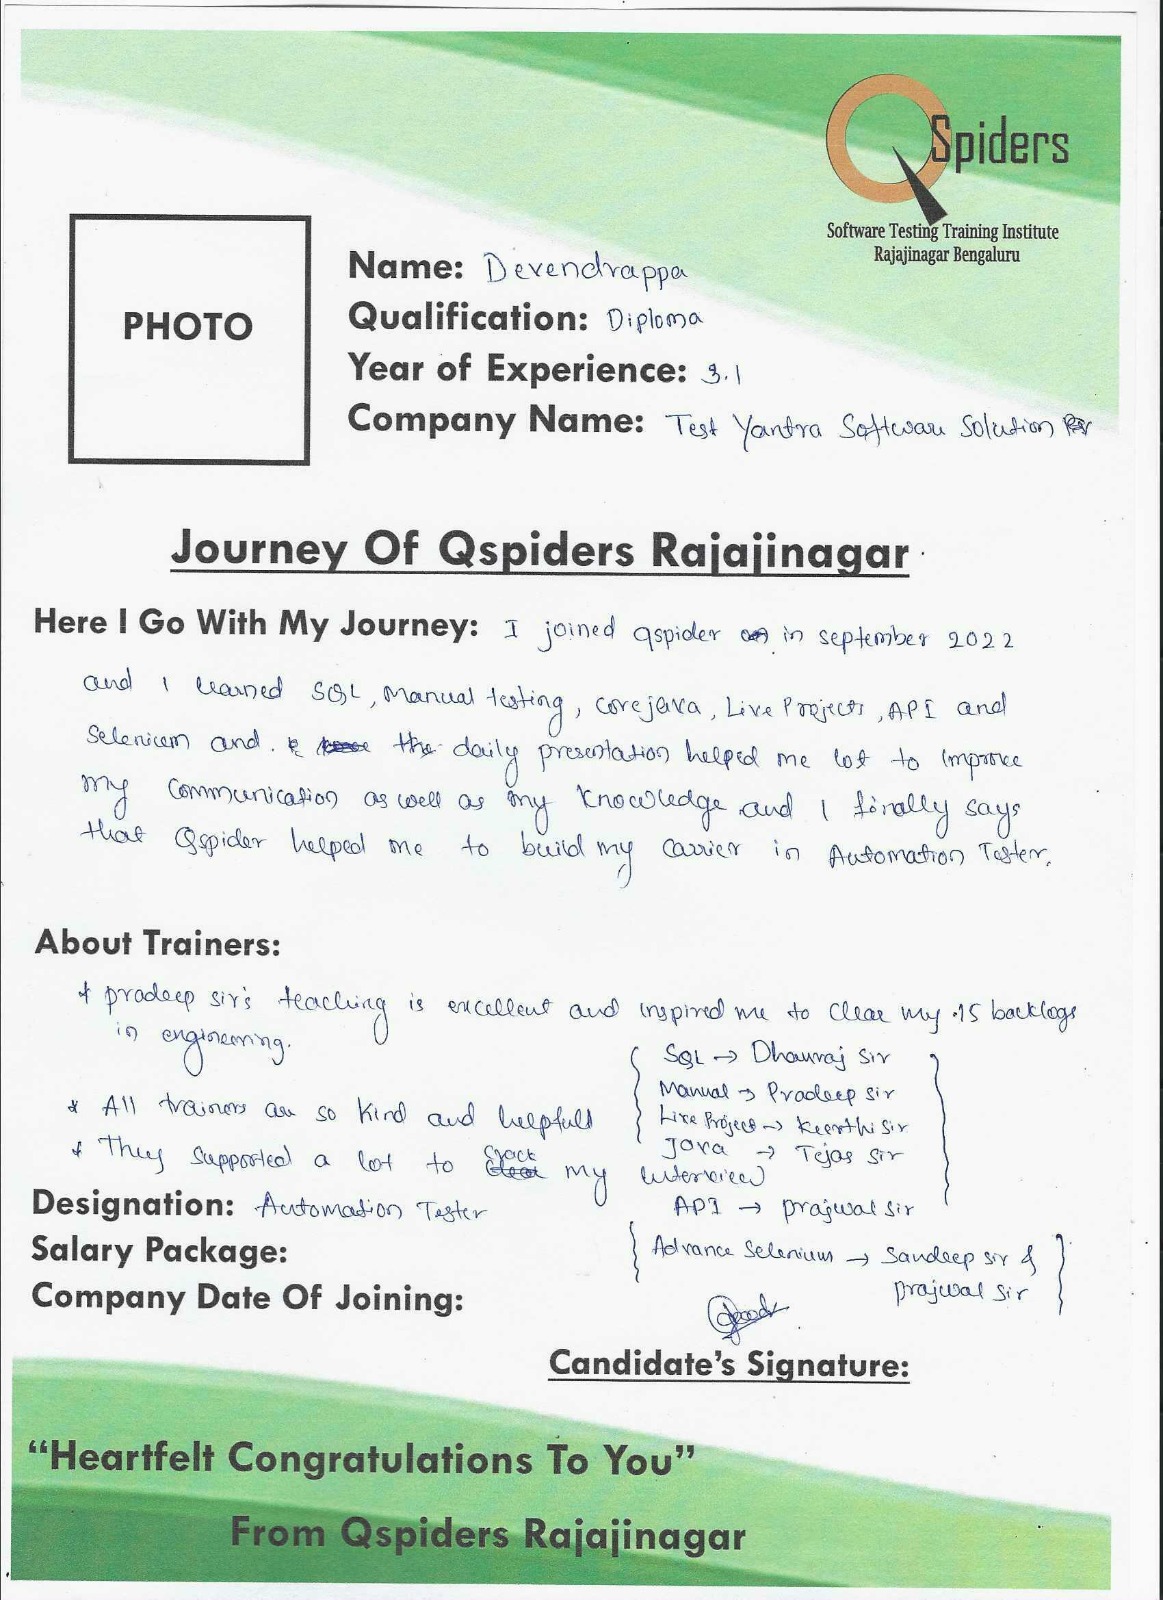 QSpiders
Software Testing Training Institute
Rajajinagar Bengaluru
PHOTO
Name: Devendrappa
Qualification: Diploma
Year of Experience: 3.1
Company Name: Test Yantra Software Solution
Journey Of Qspiders Rajajinagar
Here I Go With My Journey: I joined qspider in september 2022
and I learned SQL, Manual testing, core java, Live Projects, API and
Selenium and the daily presentation helped me lot to improve
my communication as well as my knowledge and I finally says
that Qspider helped me to build my carrier in Automation Tester.
About Trainers:
* pradeep sir's teaching is excellent and inspired me to clear my 15 backlogs
in engineering.
SQL → Dhanraj sir
Manual → Pradeep sir
* All trainers are so kind and helpfull
Live Project → Keerthi sir
Java → Tejas sir
* They supported a lot to crack my interview
Designation: Automation Tester
API → prajwal sir
Salary Package:
Advance Selenium → Sandeep sir &
prajwal sir
Company Date Of Joining:
Candidate's Signature:
“Heartfelt Congratulations To You”
From Qspiders Rajajinagar